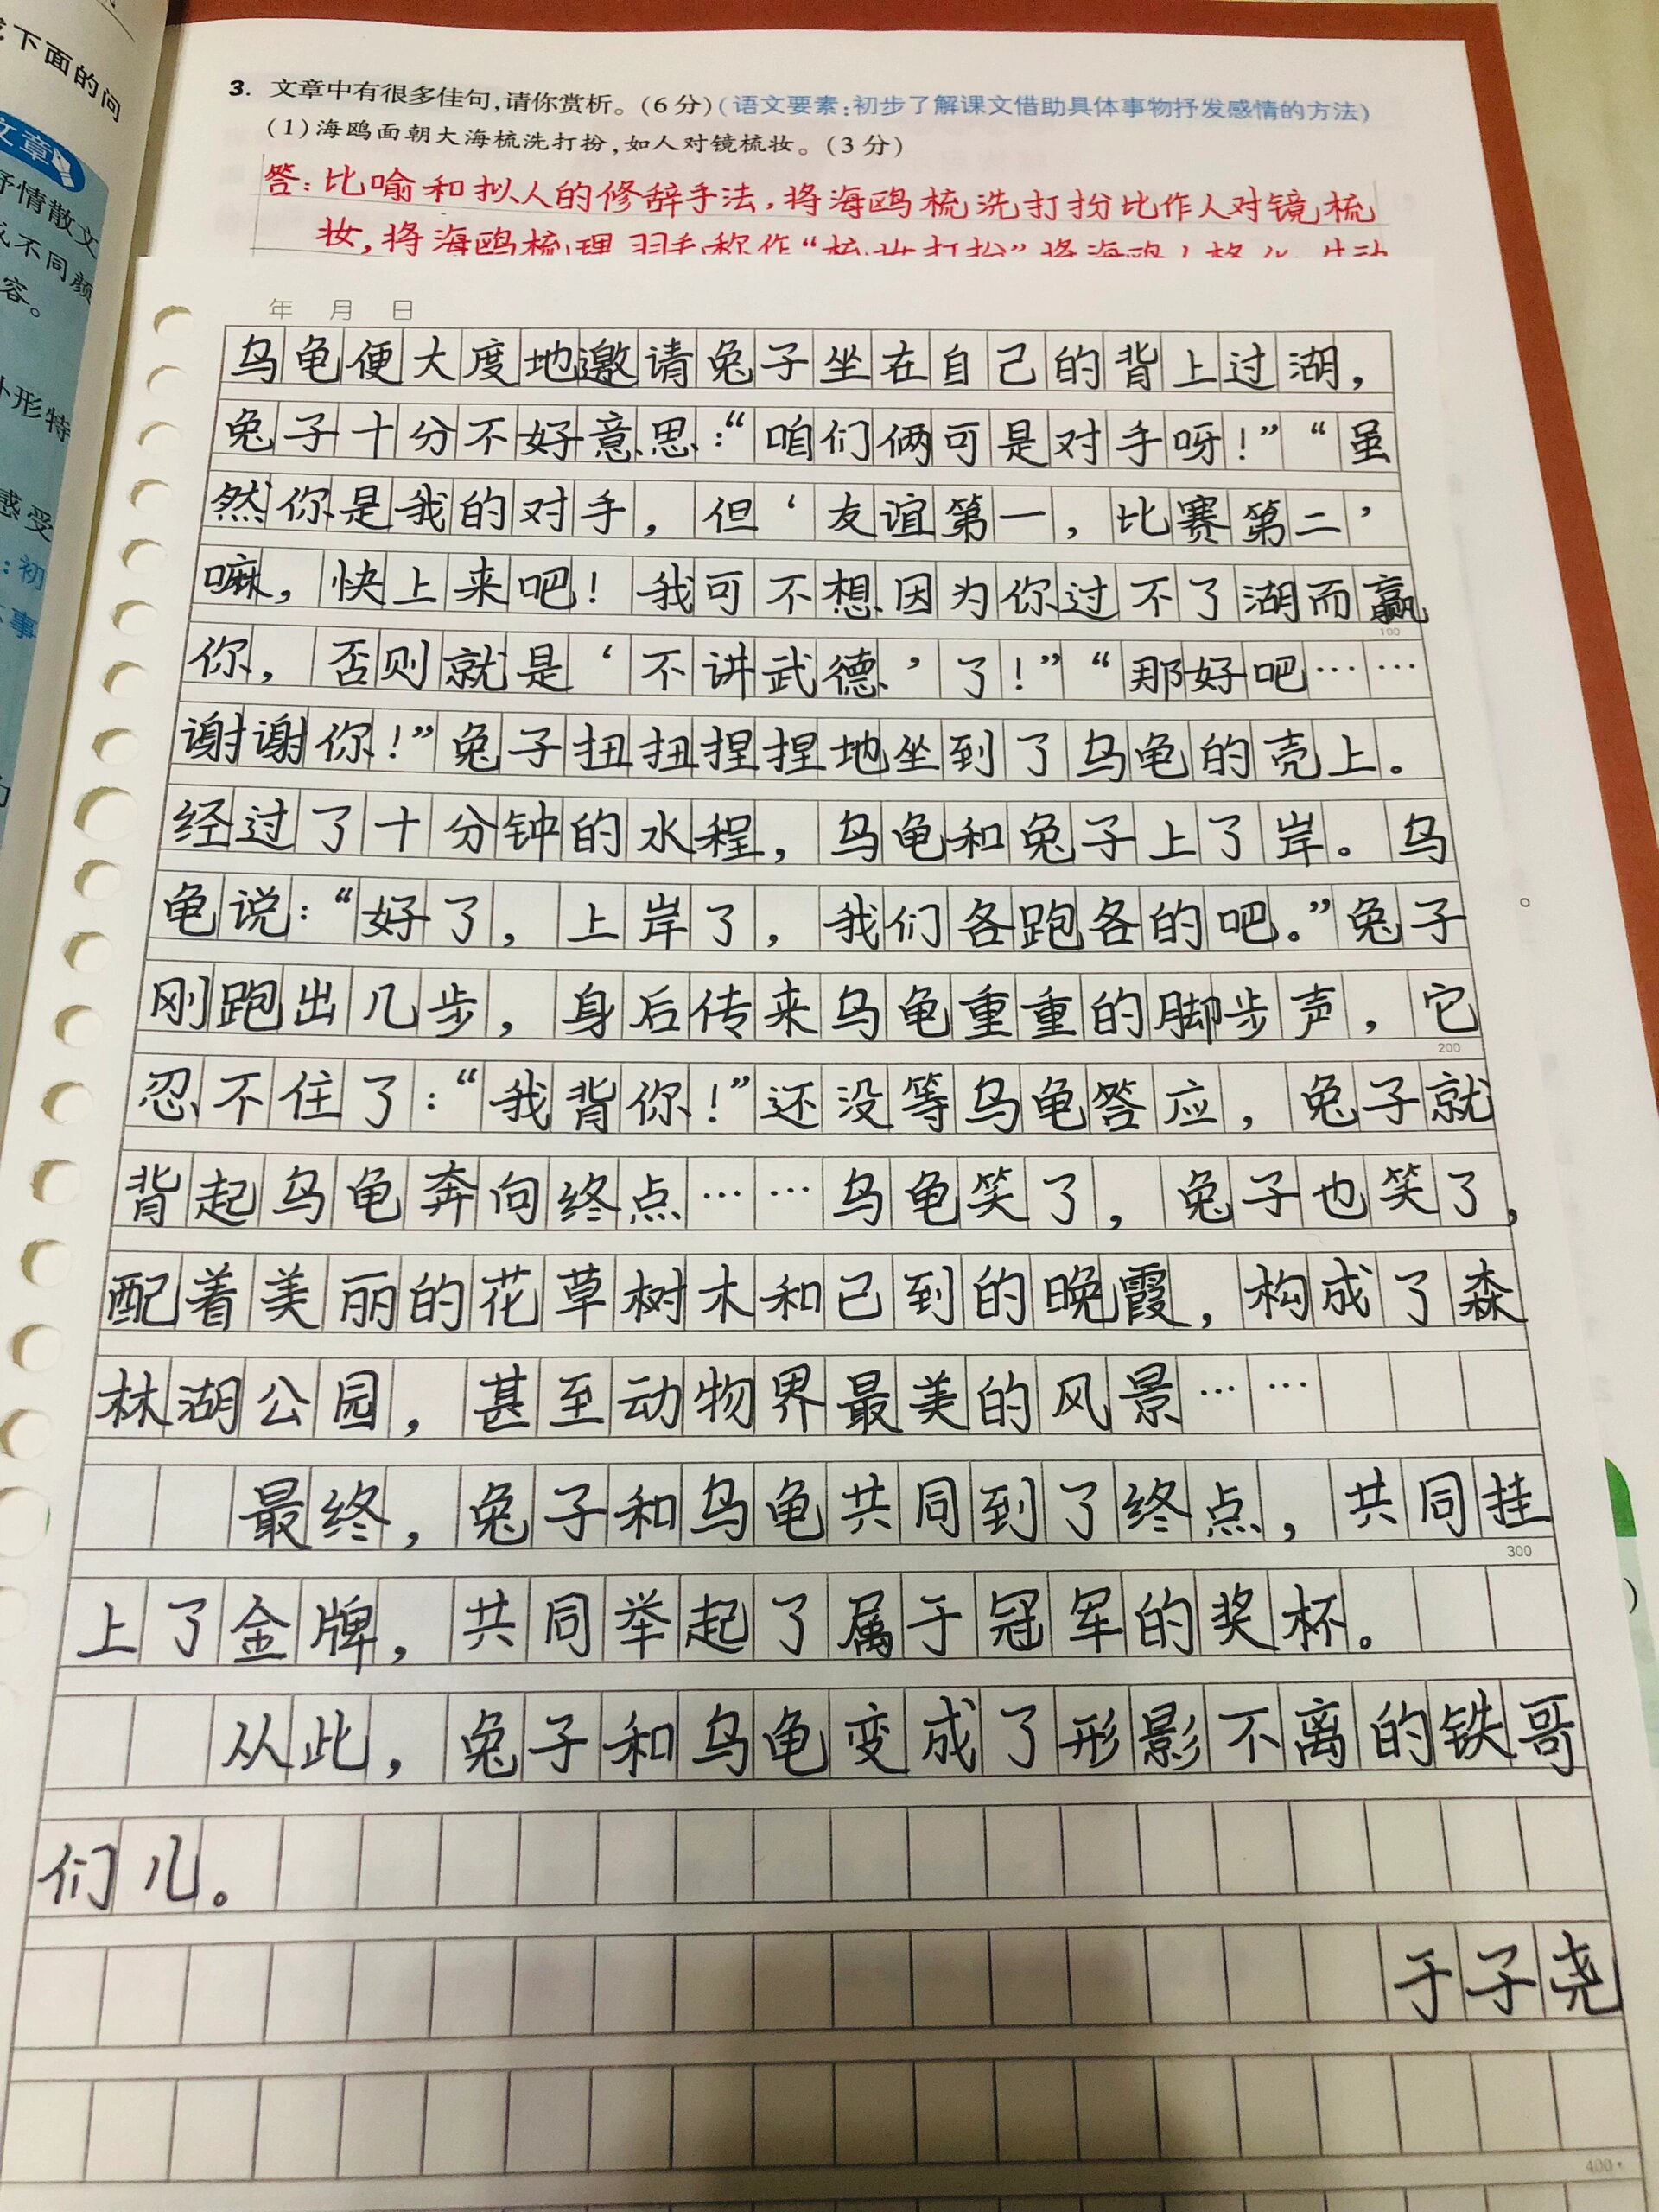 下面的问
文章
抒情散文
不同颜
容。
外形特
感受
:初
事
3. 文章中有很多佳句,请你赏析。(6分)(语文要素:初步了解课文借助具体事物抒发感情的方法)
(1)海鸥面朝大海梳洗打扮,如人对镜梳妆。(3分)
答:比喻和拟人的修辞手法,将海鸥梳洗打扮比作人对镜梳
妆,将海鸥梳理羽毛称作“梳妆打扮”将海鸥人格化,生动
年 月 日
乌龟便大度地邀请兔子坐在自己的背上过湖,
兔子十分不好意思:“咱们俩可是对手呀!”“虽
然你是我的对手,但‘友谊第一,比赛第二’
嘛,快上来吧!我可不想因为你过不了湖而赢
100
你,否则就是‘不讲武德’了!”“那好吧……
谢谢你!”兔子扭扭捏捏地坐到了乌龟的壳上。
经过了十分钟的水程,乌龟和兔子上了岸。乌
龟说:“好了,上岸了,我们各跑各的吧。”兔子
刚跑出几步,身后传来乌龟重重的脚步声,它
200
忍不住了:“我背你!”还没等乌龟答应,兔子就
背起乌龟奔向终点……乌龟笑了,兔子也笑了,
配着美丽的花草树木和已到的晚霞,构成了森
林湖公园,甚至动物界最美的风景……
最终,兔子和乌龟共同到了终点,共同挂
300
上了金牌,共同举起了属于冠军的奖杯。
从此,兔子和乌龟变成了形影不离的铁哥
们儿。
于子尧
400